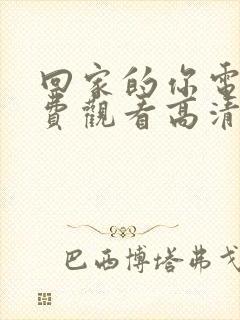 回家的你電
費觀看高清
巴西博塔弗戈